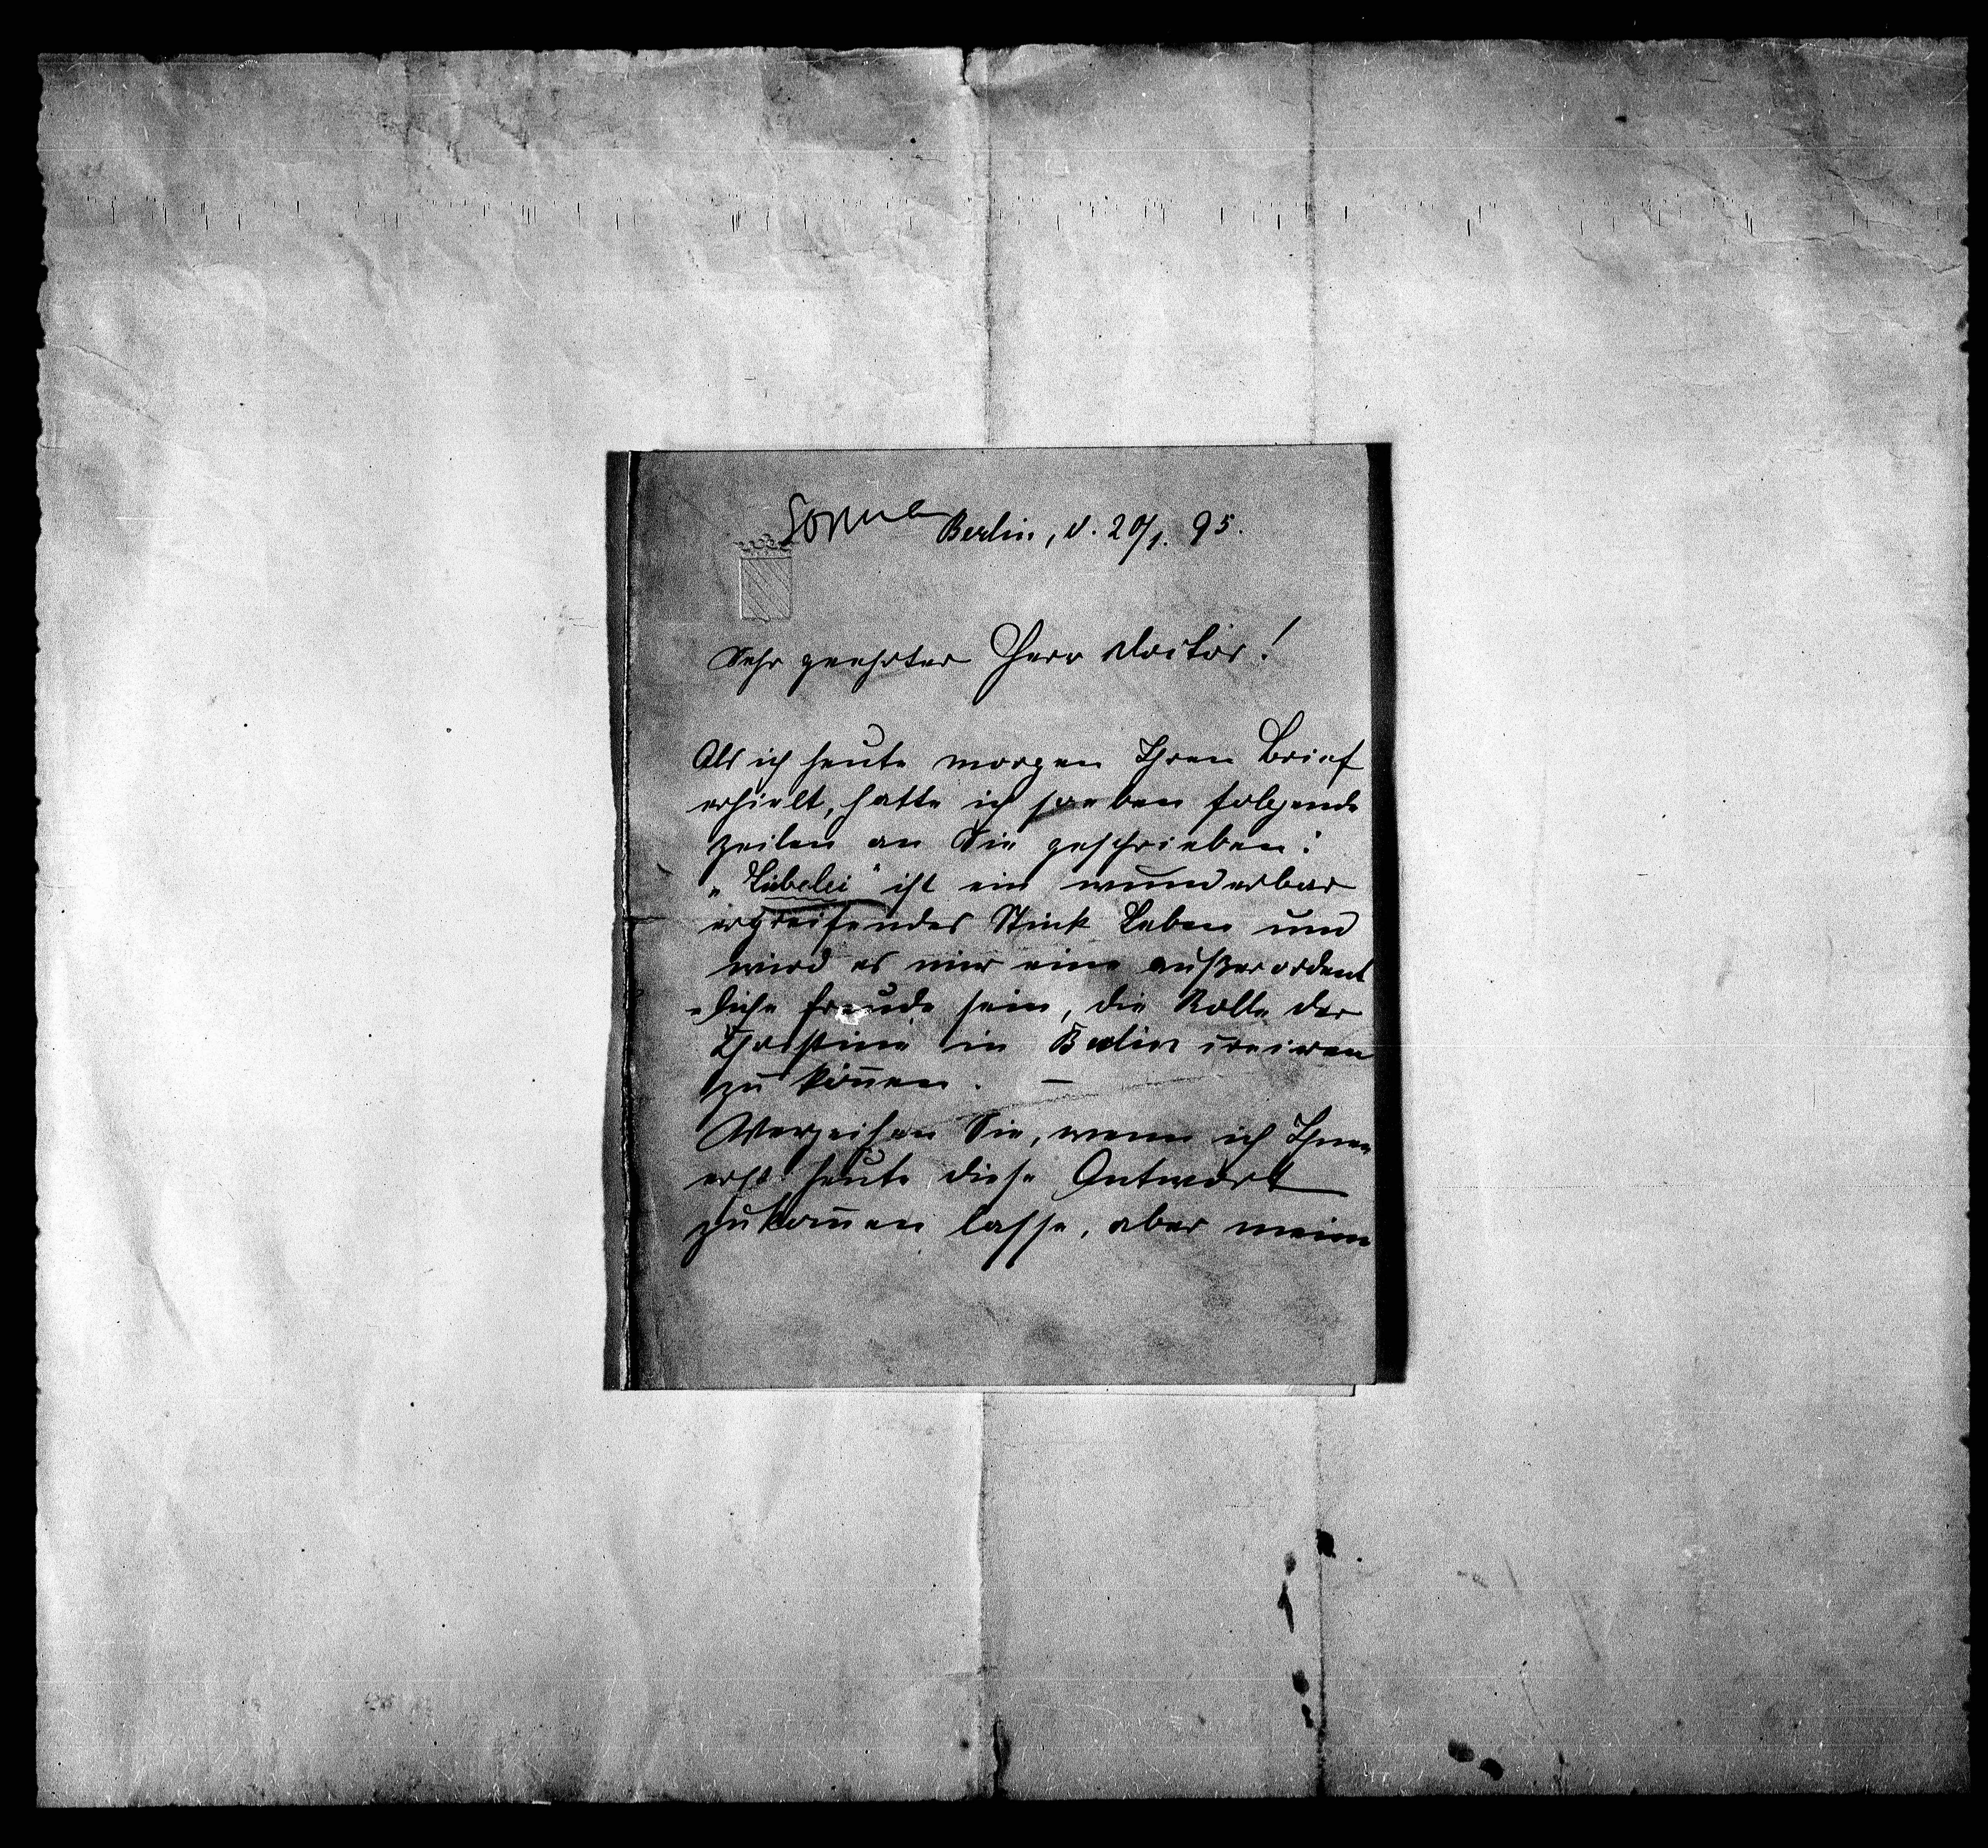 Sorma
Berlin, d. 20/1. 95.
Sehr geehrter Herr Doctor!
Als ich heute morgen Ihren Brief
erhielt, hatte ich soeben folgende
Zeilen an Sie geschrieben:
„Liebelei“ ist ein wunderbar
ergreifendes Stück Leben und
wird es mir eine außerordent
-liche Freude sein, die Rolle der
Christine in Berlin creiren
zu kön̄en. —
Verzeihen Sie, wenn ich Ihnen
erst heute diese Antwort
zukom̄en lasse, aber meine